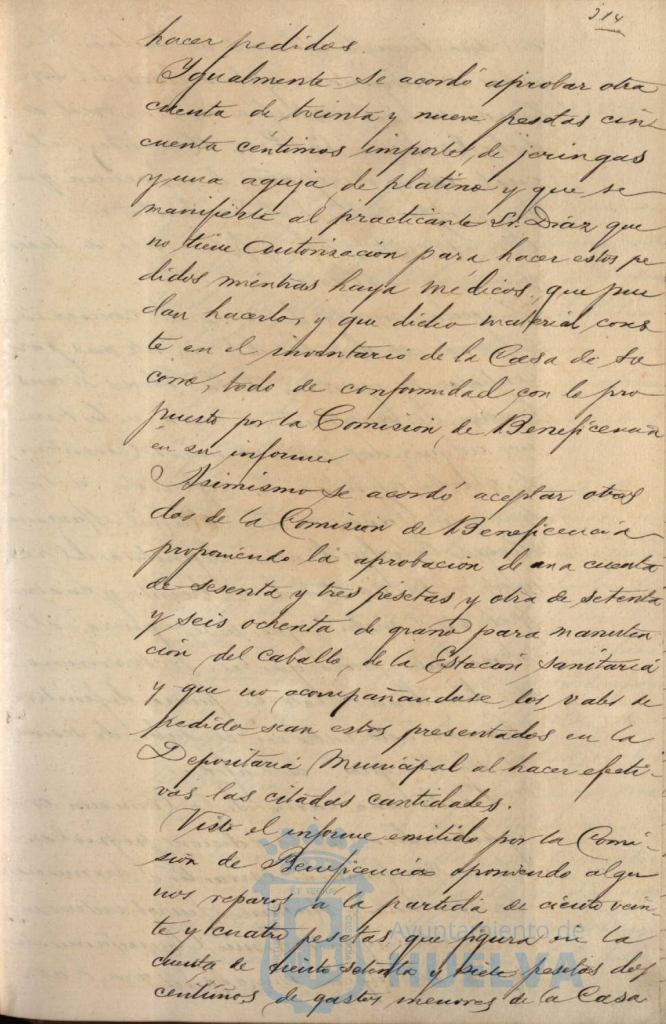 314
hacer pedidos.
Igualmente se acordó aprobar otra
cuenta de treinta y nueve pesetas cin
cuenta céntimos importe de jeringas
y una aguja de platino y que se
manifieste al practicante Sr. Diáz que
no tiene autorización para hacer estos pe
didos mientras haya médicos, que pue
dan hacerlo, y que dicho material cons
te en el inventario de la Casa de So
corro, todo de conformidad con lo pro
puesto por la Comisión de Beneficencia
en su informe.
Asimismo se acordó aceptar otras
dos de la Comisión de Beneficencia
proponiendo la aprobación de una cuenta
de sesenta y tres pesetas y otra de setenta
y seis ochenta de grano para manuten
ción del caballo de la Estación sanitaria
y que no acompañandose los vales de
pedido sean estos presentados en la
Depositaria Municipal al hacer efecti
vas las citadas cantidades.
Visto el informe emitido por la Comi-
sión de Beneficencia oponiendo algu
nos reparos á la partida de ciento vein
te y cuatro pesetas que figura en la
cuenta de ciento setenta y siete pesetas dos
centimos de gastos menores de la Casa
Ayuntamiento de
HUELVA